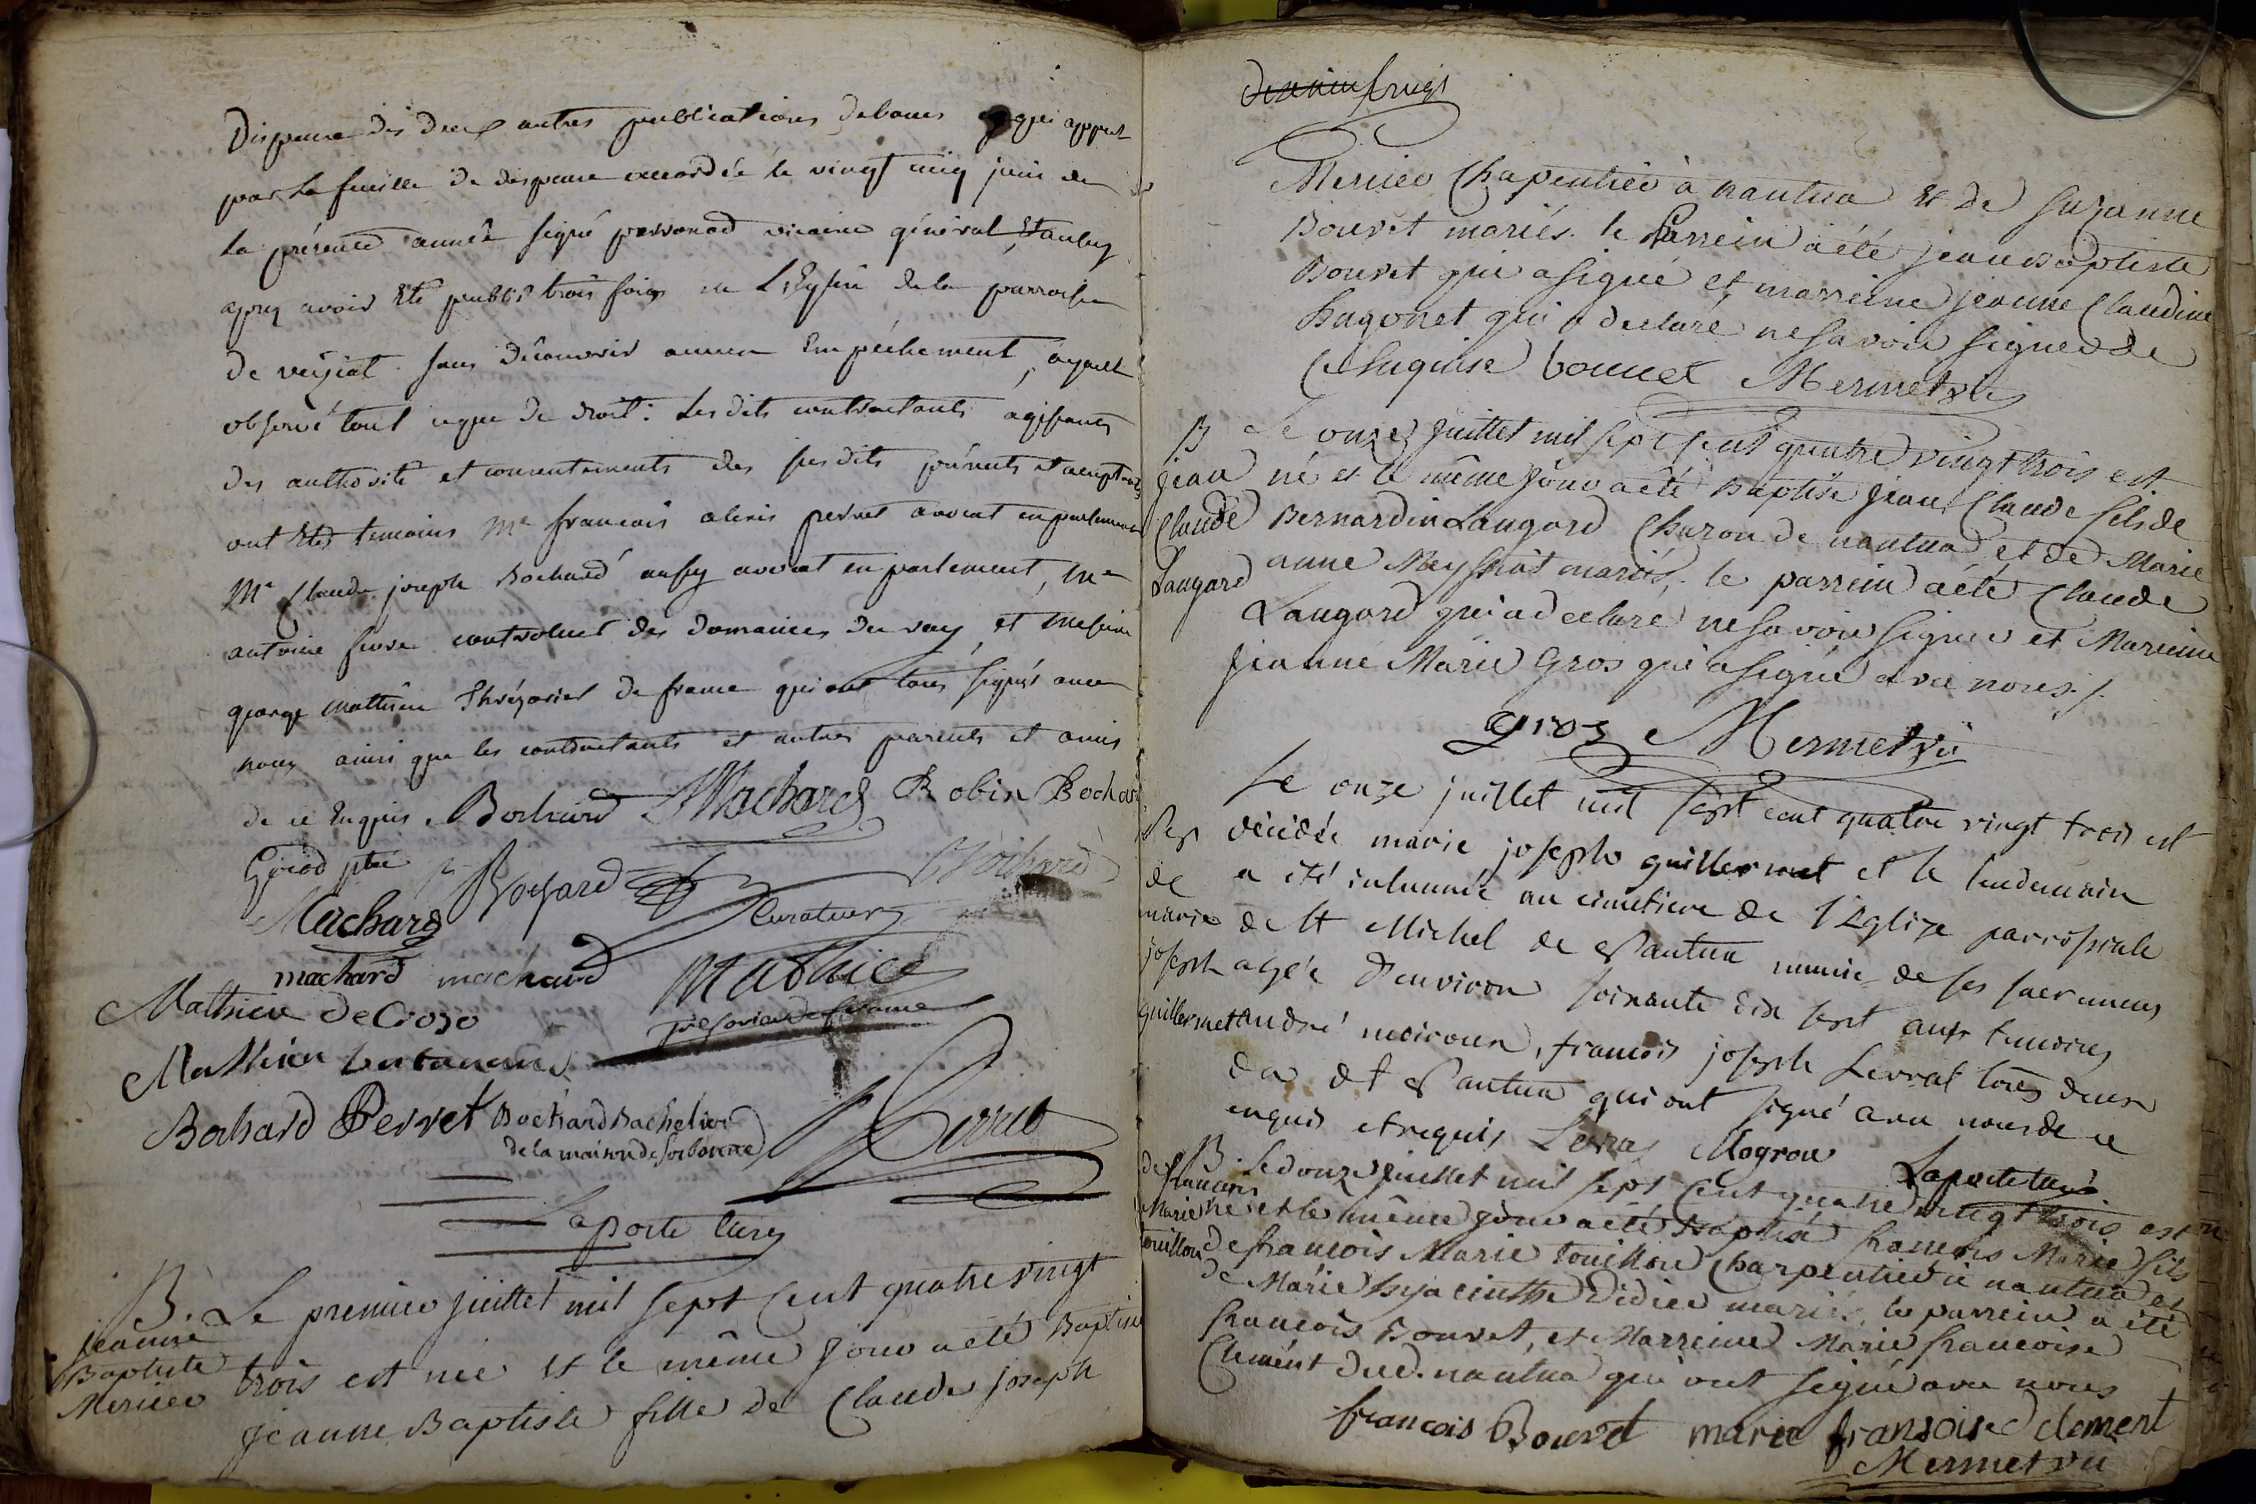 Dispense des deux autres publications de bancs appert
par la feuille de dispense accordée le vingt cinq juin de
la présente année signé vicaire général,
apres avoir été publié trois fois en L'Eglise de la parroisse
de veyziat sans découvrir aucun Empéchement, ayant
observé tout ce que de droit: Les dits contractants agissants
des authorité et consentements des susdits parents et
ont été temoins Me francois alexis perret avocat en parlement
Me Claude joseph Bochard aussy avocat en parlement, Me
antoine controleur des domaines du roy, et Messire
george mathieu thrésorier de france qui ont tous signés avec
nous ainsi que les contractants et autres parents et amis
de ce Enquis Bochard Machard Robin Bochard
Girod ptre Bochard
Machard curateur
machard machard Mathieu
Mathieu DeCroso trésorier de france
Mathieu
Bochard Perret Bochard Bachelier
de la maison de Sorbonne Perret
Laporte curé
B. Le premier juillet mil sept cent quatre vingt
jeanne
Baptiste trois est née et le même jour a été Baptisée
Mercier jeanne Baptiste fille de Claude joseph
Mercier Chapentier à nantua et de suzanne
Bouvet mariés. le Parrein a été jean Baptiste
Bouvet qui a signé et marreine jeanne Claudine
hugonet qui a declaré ne savoir signer de
ce enquise bouvet Mermet vic
B Le onze juillet mil sept cent quatre vingt trois est
jean né et le même jour a été Baptisé jean Claude fils de
Claude Bernardin Laugard Charon de nantua et de Marie
Laugard anne mariés. le parrein a été Claude
Laugard qui a declaré ne savoir signer et Mareine
jeanne Marie Gros qui a signé avec nous ./.
gros Mermet vic
Le onze juillet mil sept cent quatre vingt trois est
Sep décédée marie joseph guillermet et le lendemain
de a été inhumée au cimetiere de l'Eglize parroissiale
marie de St Michel de Nantua munie de ses sacremens
joseph agée d'environ soixante dix sept ans temoins
guillermet andré , francois joseph Levrat tous deux
du dt Nantua qui ont signé avec nous de ce
enquis et requis Levrat Mogron Laporte curé
B. Le douze juillet mil sept cent quatre vingt trois est
de francois
Marie né et le même jour a été Baptisé francois Marie fils
touillon de francois Marie touillon Charpentier à nantua et
de Marie hyacinthe Didier mariés, le parrein a été
francois Bouvet, et Marreine Marie francoise
Clement du d. nantua qui ont signé avec nous
francois Bouvet marie fransoise clement
Mermet vic